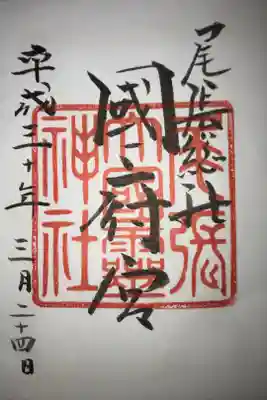 尾張総社
國府宮
平成三十年 三月二十四日
尾張
大國靈
神社